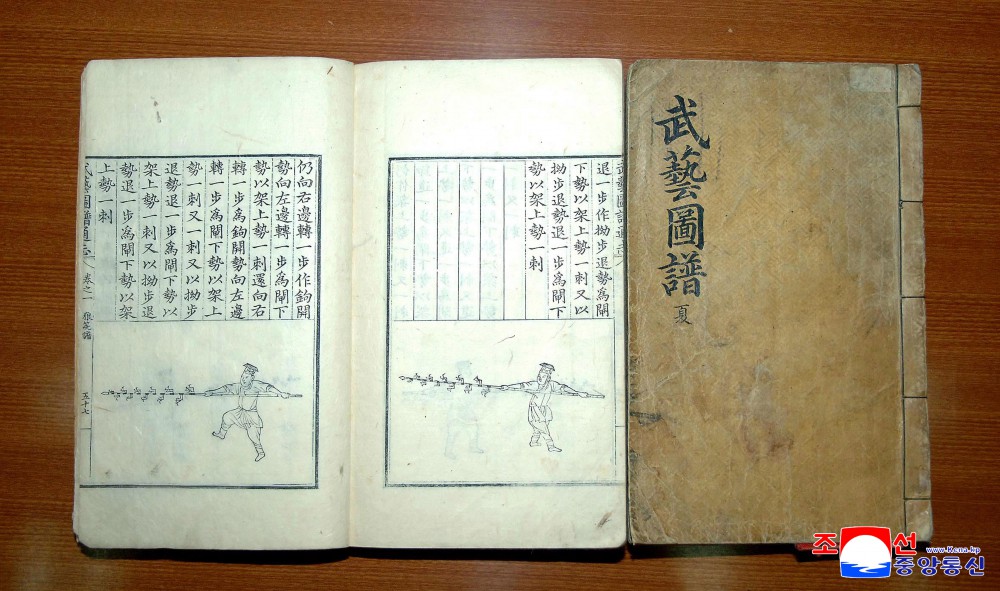 武藝圖譜
夏
退一步作拗步退勢爲閘
下勢以架上勢一刺又以
拗步退勢退一步爲閘下
勢以架上勢一刺
仍向右邊轉一步作鉤開
勢向左邊轉一步爲閘下
勢以架上勢一刺還向右
轉一步爲鉤開勢向左邊
轉一步爲閘下勢以架上
勢一刺又一刺又以拗步
退勢退一步爲閘下勢以
架上勢一刺又以拗步退
勢退一步爲閘下勢以架
上勢一刺
武藝圖譜通志 卷之一 狼筅譜 五十七
조선
www.kcna.kp
중앙통신